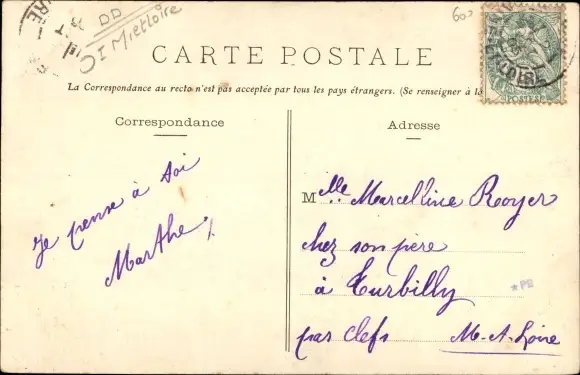 DD
CARTE POSTALE
La Correspondance au recto n'est pas acceptée par tous les pays étrangers. (Se renseigner à la
Correspondance
Je pense à toi
Marthe
Adresse
Melle Marcelline Royer
chez son père
à Turbilly
par Clefs M-et-Loire
600
POSTES
LOIRE